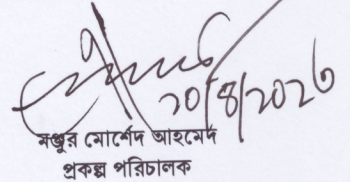 ২০/৪/২০২৩
মঞ্জুর মোর্শেদ আহমেদ
প্রকল্প পরিচালক